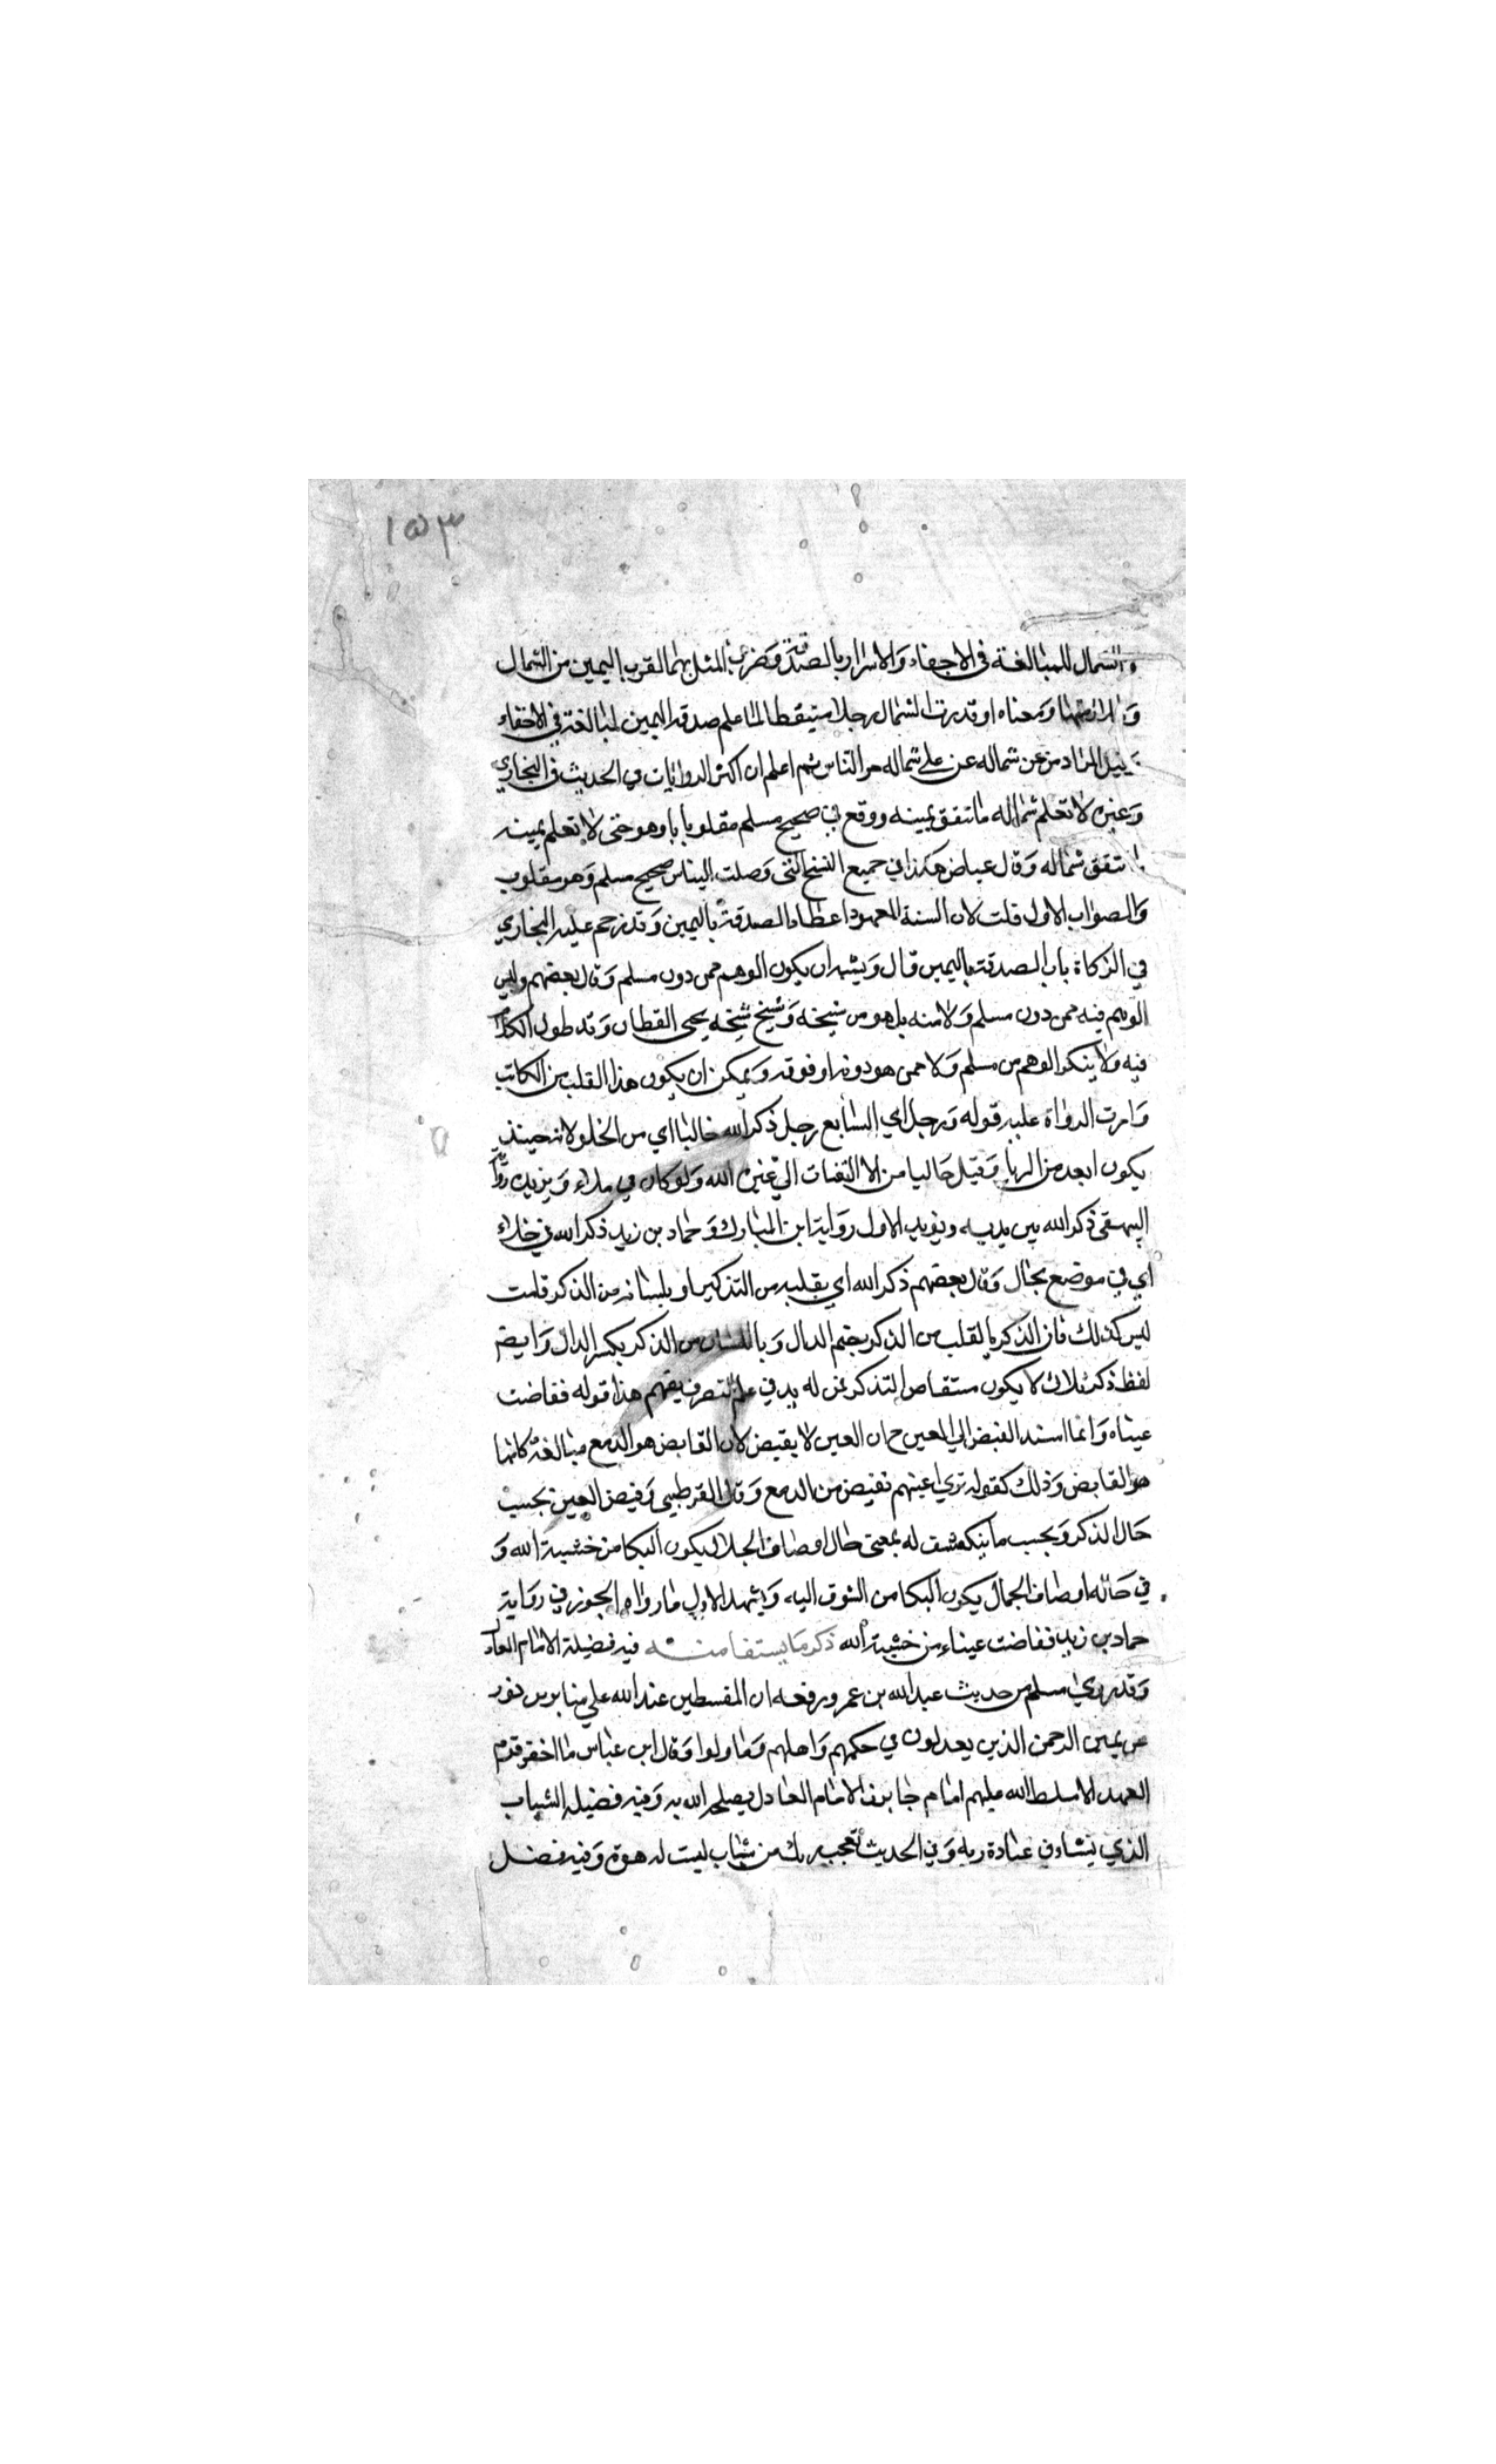 ١٥٣
والشمال للمبالغة في الاخفاء والاسرار بالصدقة وضرب المثل بهما لقرب اليمين من الشمال
ومعناه لو قدرت الشمال رجلا متيقظا لما علم صدقة اليمين لمبالغته في الاخفاء
المراد من عن شماله عن علي شماله من الناس ثم اعلم ان اكثر الروايات في الحديث في البخاري
وغيره لا تعلم شماله ما تنفق يمينه ووقع في صحيح مسلم مقلوبا وهو حتى لا تعلم يمينه
تنفق شماله وقال عياض هكذا في جميع النسخ التي وصلت الينا من صحيح مسلم وهو مقلوب
والصواب الاول قلت لان السنة المعهود اعطاء الصدقة باليمين وقد ترجم عليه البخاري
في الزكاة باب الصدقة باليمين قال ويشبه ان يكون الوهم ممن دون مسلم وقال بعضهم وليس
الوهم فيه ممن دون مسلم ولا منه بل هو من شيخه وشيخ شيخه يحيى القطان وقد طول الكلام
فيه ولا ينكر الوهم من مسلم ولا ممن هو دونه او فوقه ويمكن ان يكون هذا القلب من الكاتب
وامرت الرواة عليه قوله ورجل اي السابع رجل ذكر الله خاليا اي من الخلو لانه حينئذ
يكون ابعد من الريا وقيل خاليا من الالتفات الي غير الله ولو كان في ملاء ويؤيده رواية
البيهقي ذكر الله بين يديه ويؤيد الاول رواية ابن المبارك وحماد بن زيد ذكر الله في خلاء
اي في موضع خال وقال بعضهم ذكر الله اي بقلبه من التذكير او بلسانه من الذكر قلت
ليس كذلك فان الذكر بالقلب من الذكر بضم الدال وباللسان من الذكر بكسر الدال وايضا
لفظ ذكر ثلاثي لا يكون مشتقا من التذكر فمن له يد في علم التصرف يفهم هذا قوله ففاضت
عيناه وانما اسند الفيض الي العين مع ان العين لا يفيض لان الفايض هو الدمع مبالغة كانها
هو الفايض وذلك كقوله تري اعينهم تفيض من الدمع وقال القرطبي وفيض العين بحسب
حال الذكر وبحسب ما ينكشف له بمعنى حال اوصاف الجلال يكون البكا من خشية الله و
في حالة اوصاف الجمال يكون البكا من الشوق اليه ويشهد الاول ما رواه الجوزقي رواية
حماد بن زيد ففاضت عيناه من خشية الله ذكر ما يستفاد منه فيه فضيلة الامام العادل
وقد روي مسلم من حديث عبد الله بن عمرو رفعه ان المقسطين عند الله علي منابر من نور
عن يمين الرحمن الذين يعدلون في حكمهم واهلهم وما ولوا وقال ابن عباس ما اخفر قوم
العهد الا سلط الله عليهم امام جاير فالامام العادل يصلح الله به وفيه فضيلة الشباب
الذي ينشا في عبادة ربه وفي الحديث تعجب ربك من شاب ليست له صبوة وفيه فضل